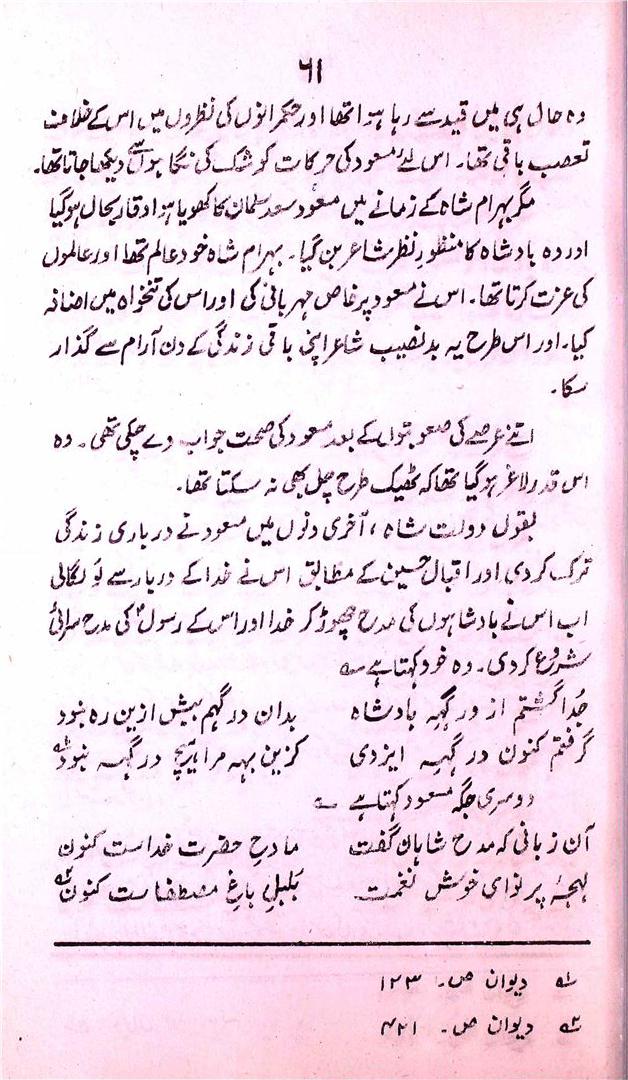 ۶۱
وہ حال ہی میں قید سے رہا ہوا تھا اور حکمرانوں کی نظروں میں اس کے خلاف
تعصب باقی تھا۔ اس لئے مسعود کی حرکات کو شک کی نگاہوں سے دیکھا جاتا تھا۔
مگر بہرام شاہ کے زمانے میں مسعود سعد سلمان کا کھویا ہوا وقار بحال ہو گیا
اور وہ بادشاہ کا منظورِ نظر شاعر بن گیا۔ بہرام شاہ خود عالم تھا اور عالموں
کی عزت کرتا تھا۔ اس نے مسعود پر خاص مہربانی کی اور اس کی تنخواہ میں اضافہ
کیا۔ اور اس طرح یہ بدنصیب شاعر اپنی باقی زندگی کے دن آرام سے گذار
سکا۔
اتنے عرصے کی صعوبتوں کے بعد مسعود کی صحت جواب دے چکی تھی۔ وہ
اس قدر لاغر ہو گیا تھا کہ ٹھیک طرح چل بھی نہ سکتا تھا۔
بقول دولت شاہ، آخری دنوں میں مسعود نے درباری زندگی
ترک کر دی اور اقبال حسین کے مطابق اس نے خدا کے دربار سے لَو لگائی
اب اس نے بادشاہوں کی مدح چھوڑ کر خدا اور اس کے رسولؐ کی مدح سرائی
شروع کر دی۔ وہ خود کہتا ہے ؎
جُدا گشتم از درگہِ بادشاہ بدان درگہم بیش ازین رہ بنود
گرفتم کنون درگہِ ایزدی کزین بہہ مرا ہیچ درگہہ بنود؂۱
دوسری جگہ مسعود کہتا ہے ؎
آن زبانی کہ مدح شاہان گفت مادحِ حضرت خداست کنون
لہجۂ پر نوای خوش نغمت بلبلِ باغِ مصطفاست کنون؂۲
؂۱ دیوان ص۔ ۱۲۳
؂۲ دیوان ص۔ ۴۲۱